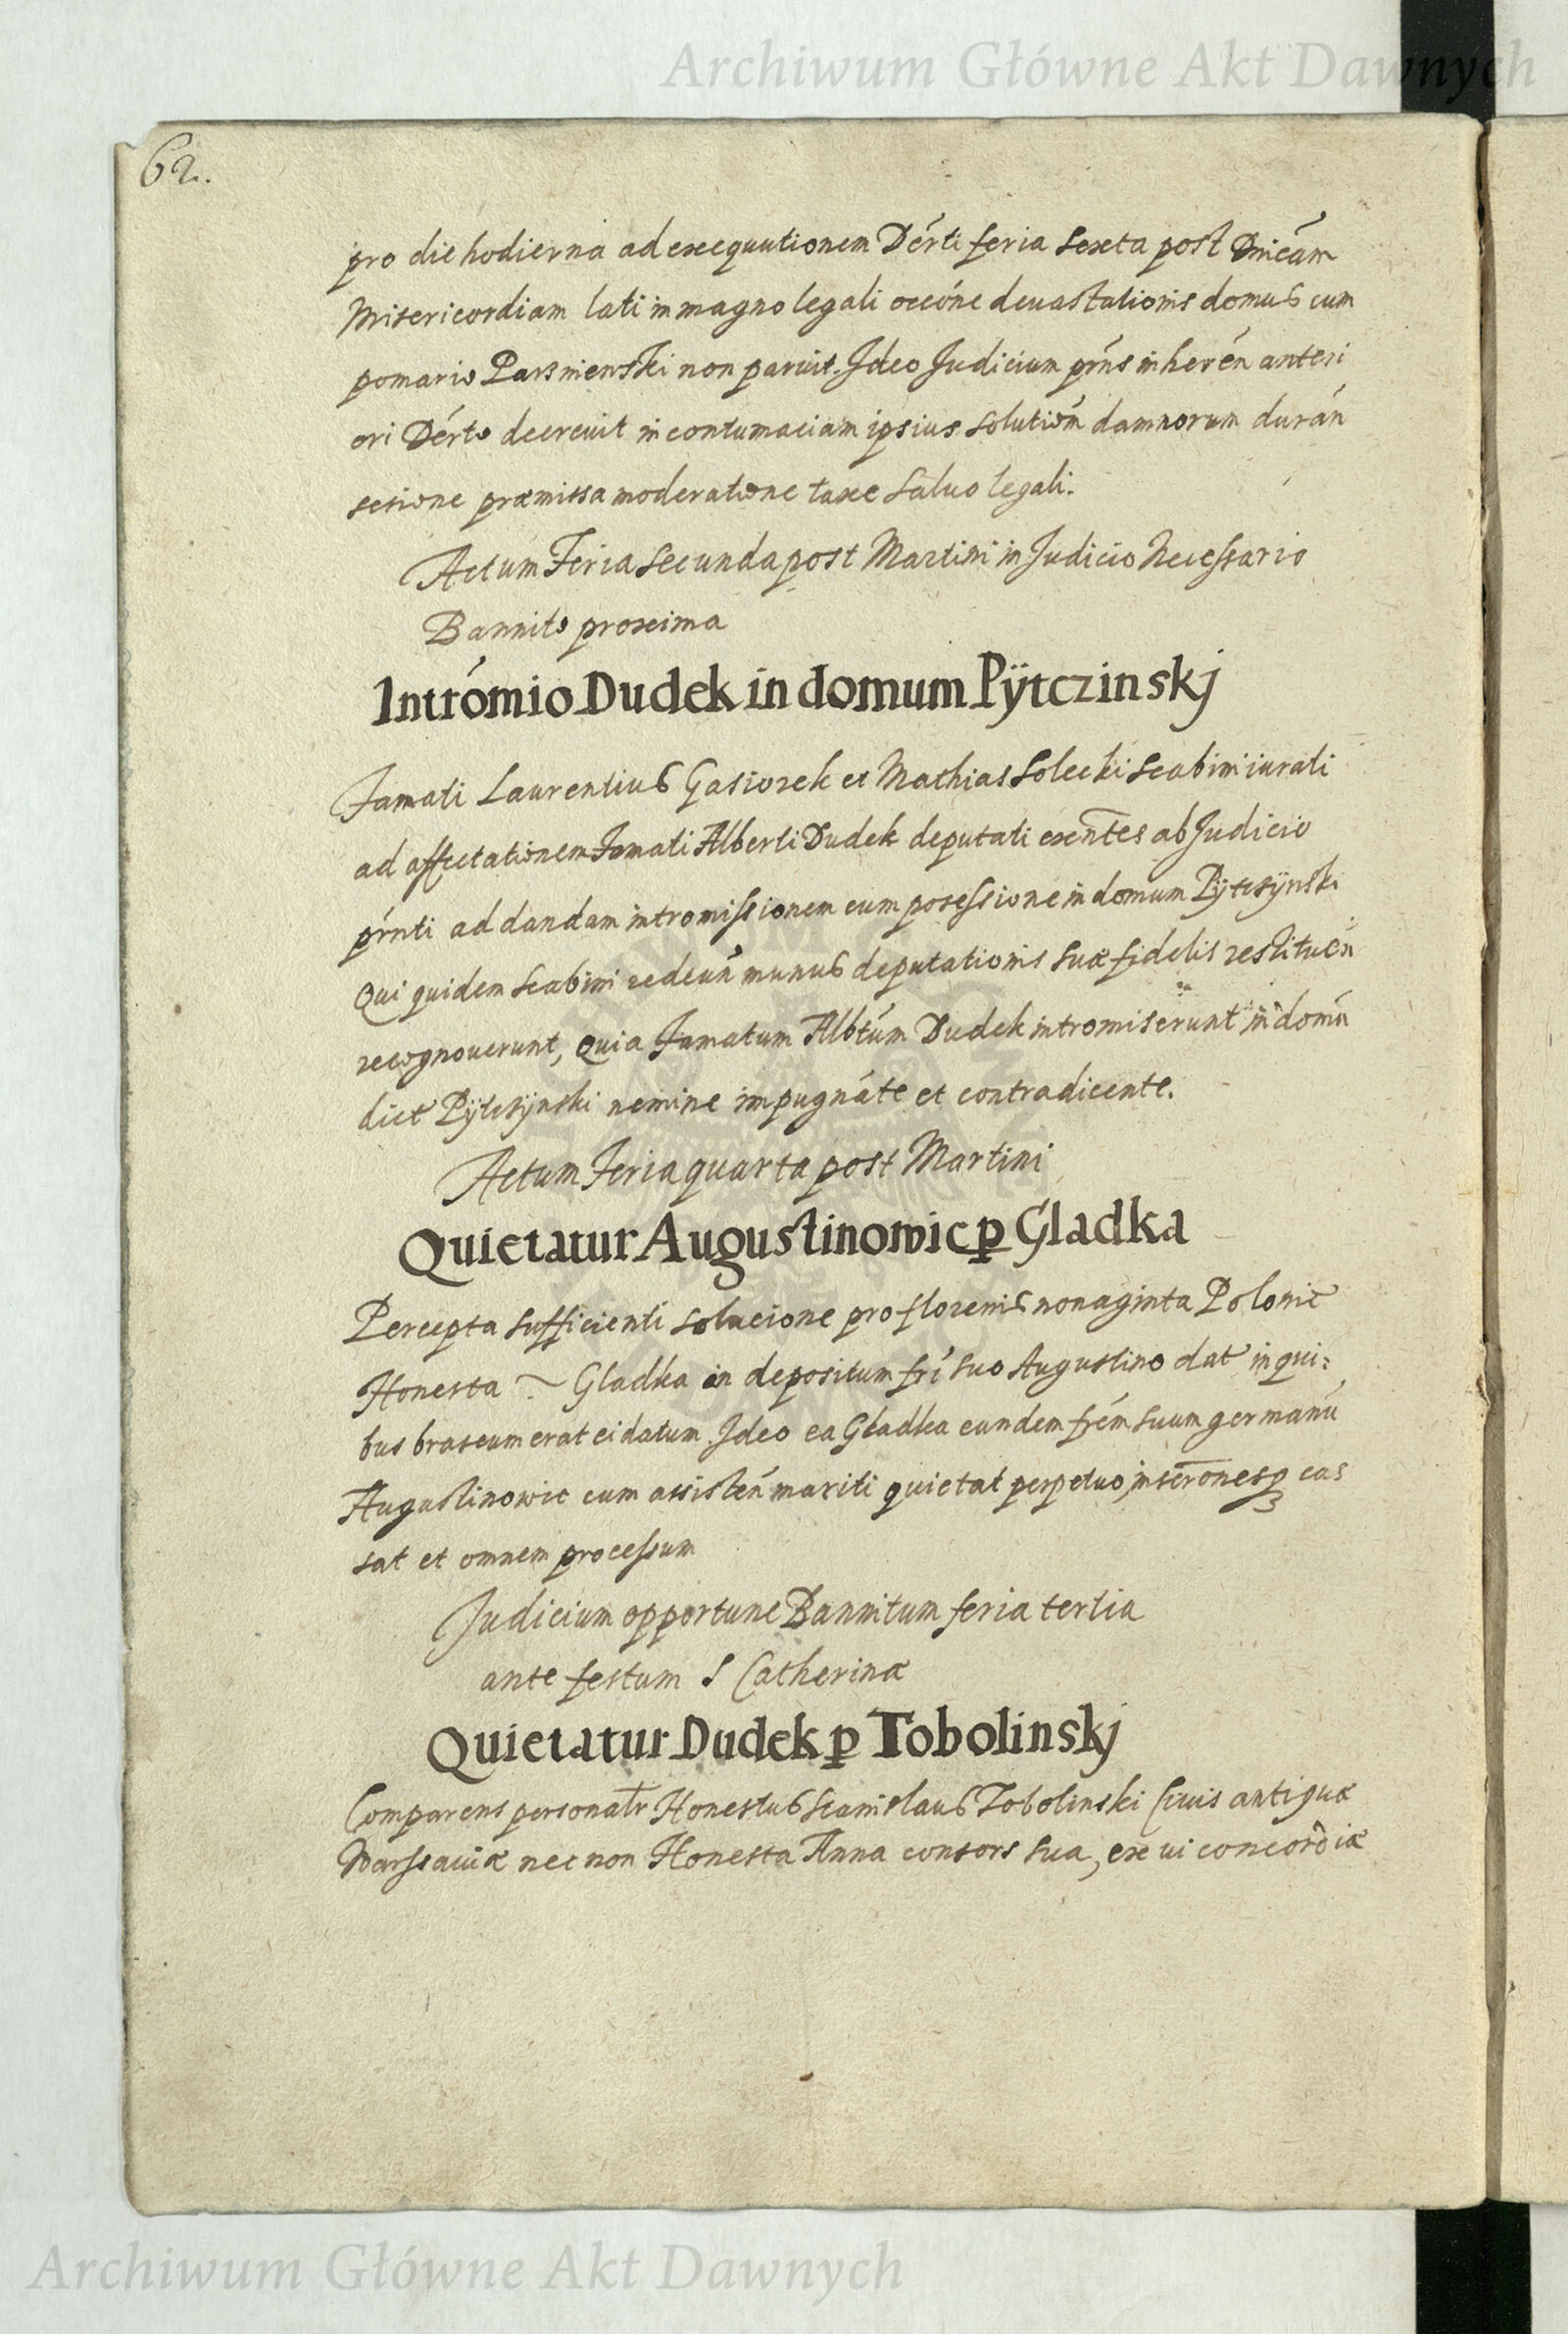 Archiwum Główne Akt Dawnych
62.
pro die hodierna ad exequutionem Dérti feria sexta post Dnicám
Misericordiam lati in magno legali occóne devastationis domus cum
pomario Parzniewski non paruit. Ideo Judicium prńs inherén anteri
ori Dérto decrevit in contumaciam ipsius solutióm damnorum durán
sesione præmissa moderatione taxe salvo legali.
Actum Feria secunda post Martini in Judicio Necessario
Bannito proxima
Intrómio Dudek in domum Pÿtczinskj
Famati Laurentius Gasiorek et Mathias Solecki scabini iurati
ad affectationem Famati Alberti Dudek deputati exeñtes ab Judicio
prńti ad dandam intromissionem cum possessione in domum Pÿtczÿnski
Qui quidem scabini redeuń munus deputationis suæ fidelis restitueń
recognoverunt, Quia Famatum Albtúm Dudek intromiserunt in domń
dict Pÿtczÿnski nemine impugnáte et contradicente.
Actum Feria quarta post Martini
Quietatur Augustinowic ꝑ Gladka
Percepta sufficienti solucione pro florenis nonaginta Polonic
Honesta ~ Gladka in depositum frí suo Augustino dat in qui:
bus braseum erat ei datum. Ideo ea Gladka eundem frém suum germanú
Augustinowic cum assisteń mariti quietat perpetuo, inscrōnesq cas
sat et omnem processum
Judicium opportune Bannitum feria tertia
ante festum S Catherinæ
Quietatur Dudek ꝑ Tobolinskj
Comparens personatr Honestus Stanislaus Tobolinski Civis antiquæ
Warssaviæ nec non Honesta Anna consors sua, ex vi concordiæ
Archiwum Główne Akt Dawnych